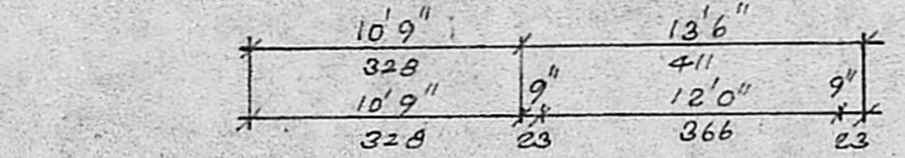 10'9" 13'6"
328 411
10'9" 9" 12'0" 9"
328 23 366 23